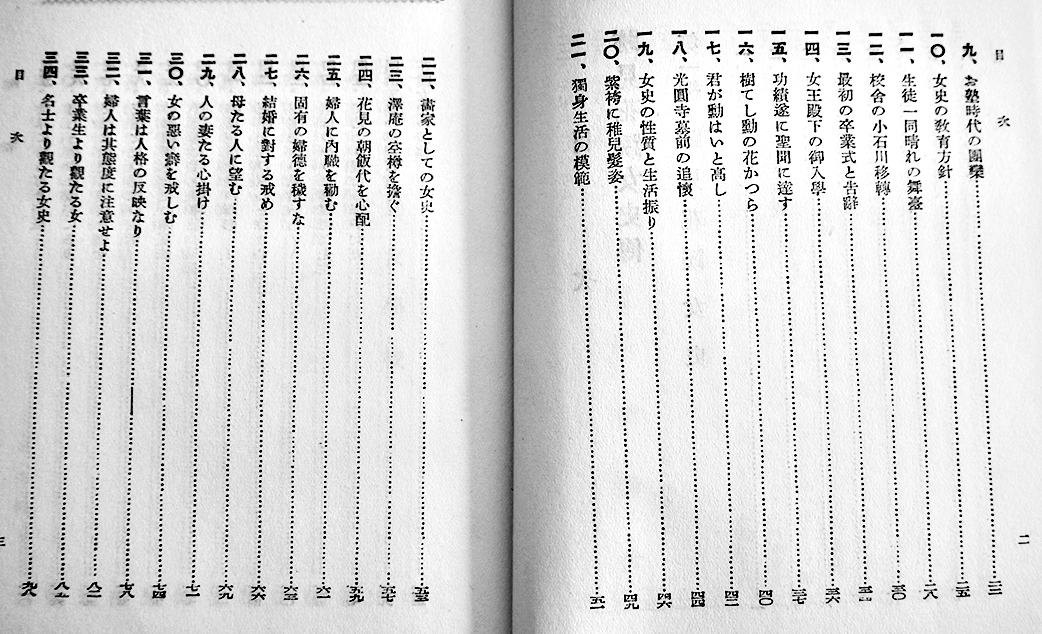 目次
九、お塾時代の團欒……二三
一〇、女史の敎育方針……二五
一一、生徒一同晴れの舞臺……二八
一二、校舍の小石川移轉……三〇
一三、最初の卒業式と告辭
一四、女王殿下の御入學……三六
一五、功績遂に聖聞に達す……三七
一六、樹てし勳の花かつら……四〇
一七、君が勳はいと高し……四二
一八、光圓寺墓前の追懷……四四
一九、女史の性質と生活振り……四六
二〇、紫袴に稚兒髮姿……四九
二一、獨身生活の模範……五一
二
二二、畵家としての女史……五三
二三、澤庵の空樽を擔ぐ……五七
二四、花見の朝飯代を心配……五九
二五、婦人に內職を勸む……六一
二六、固有の婦德を穢すな……六三
二七、結婚に對する戒め……六六
二八、母たる人に望む……六九
二九、人の妻たる心掛け……七一
三〇、女の惡い癖を戒しむ……七四
三一、言葉は人格の反映なり……七八
三二、婦人は其態度に注意せよ……八二
三三、卒業生より觀たる女
三四、名士より觀たる女史……九八
目次
三